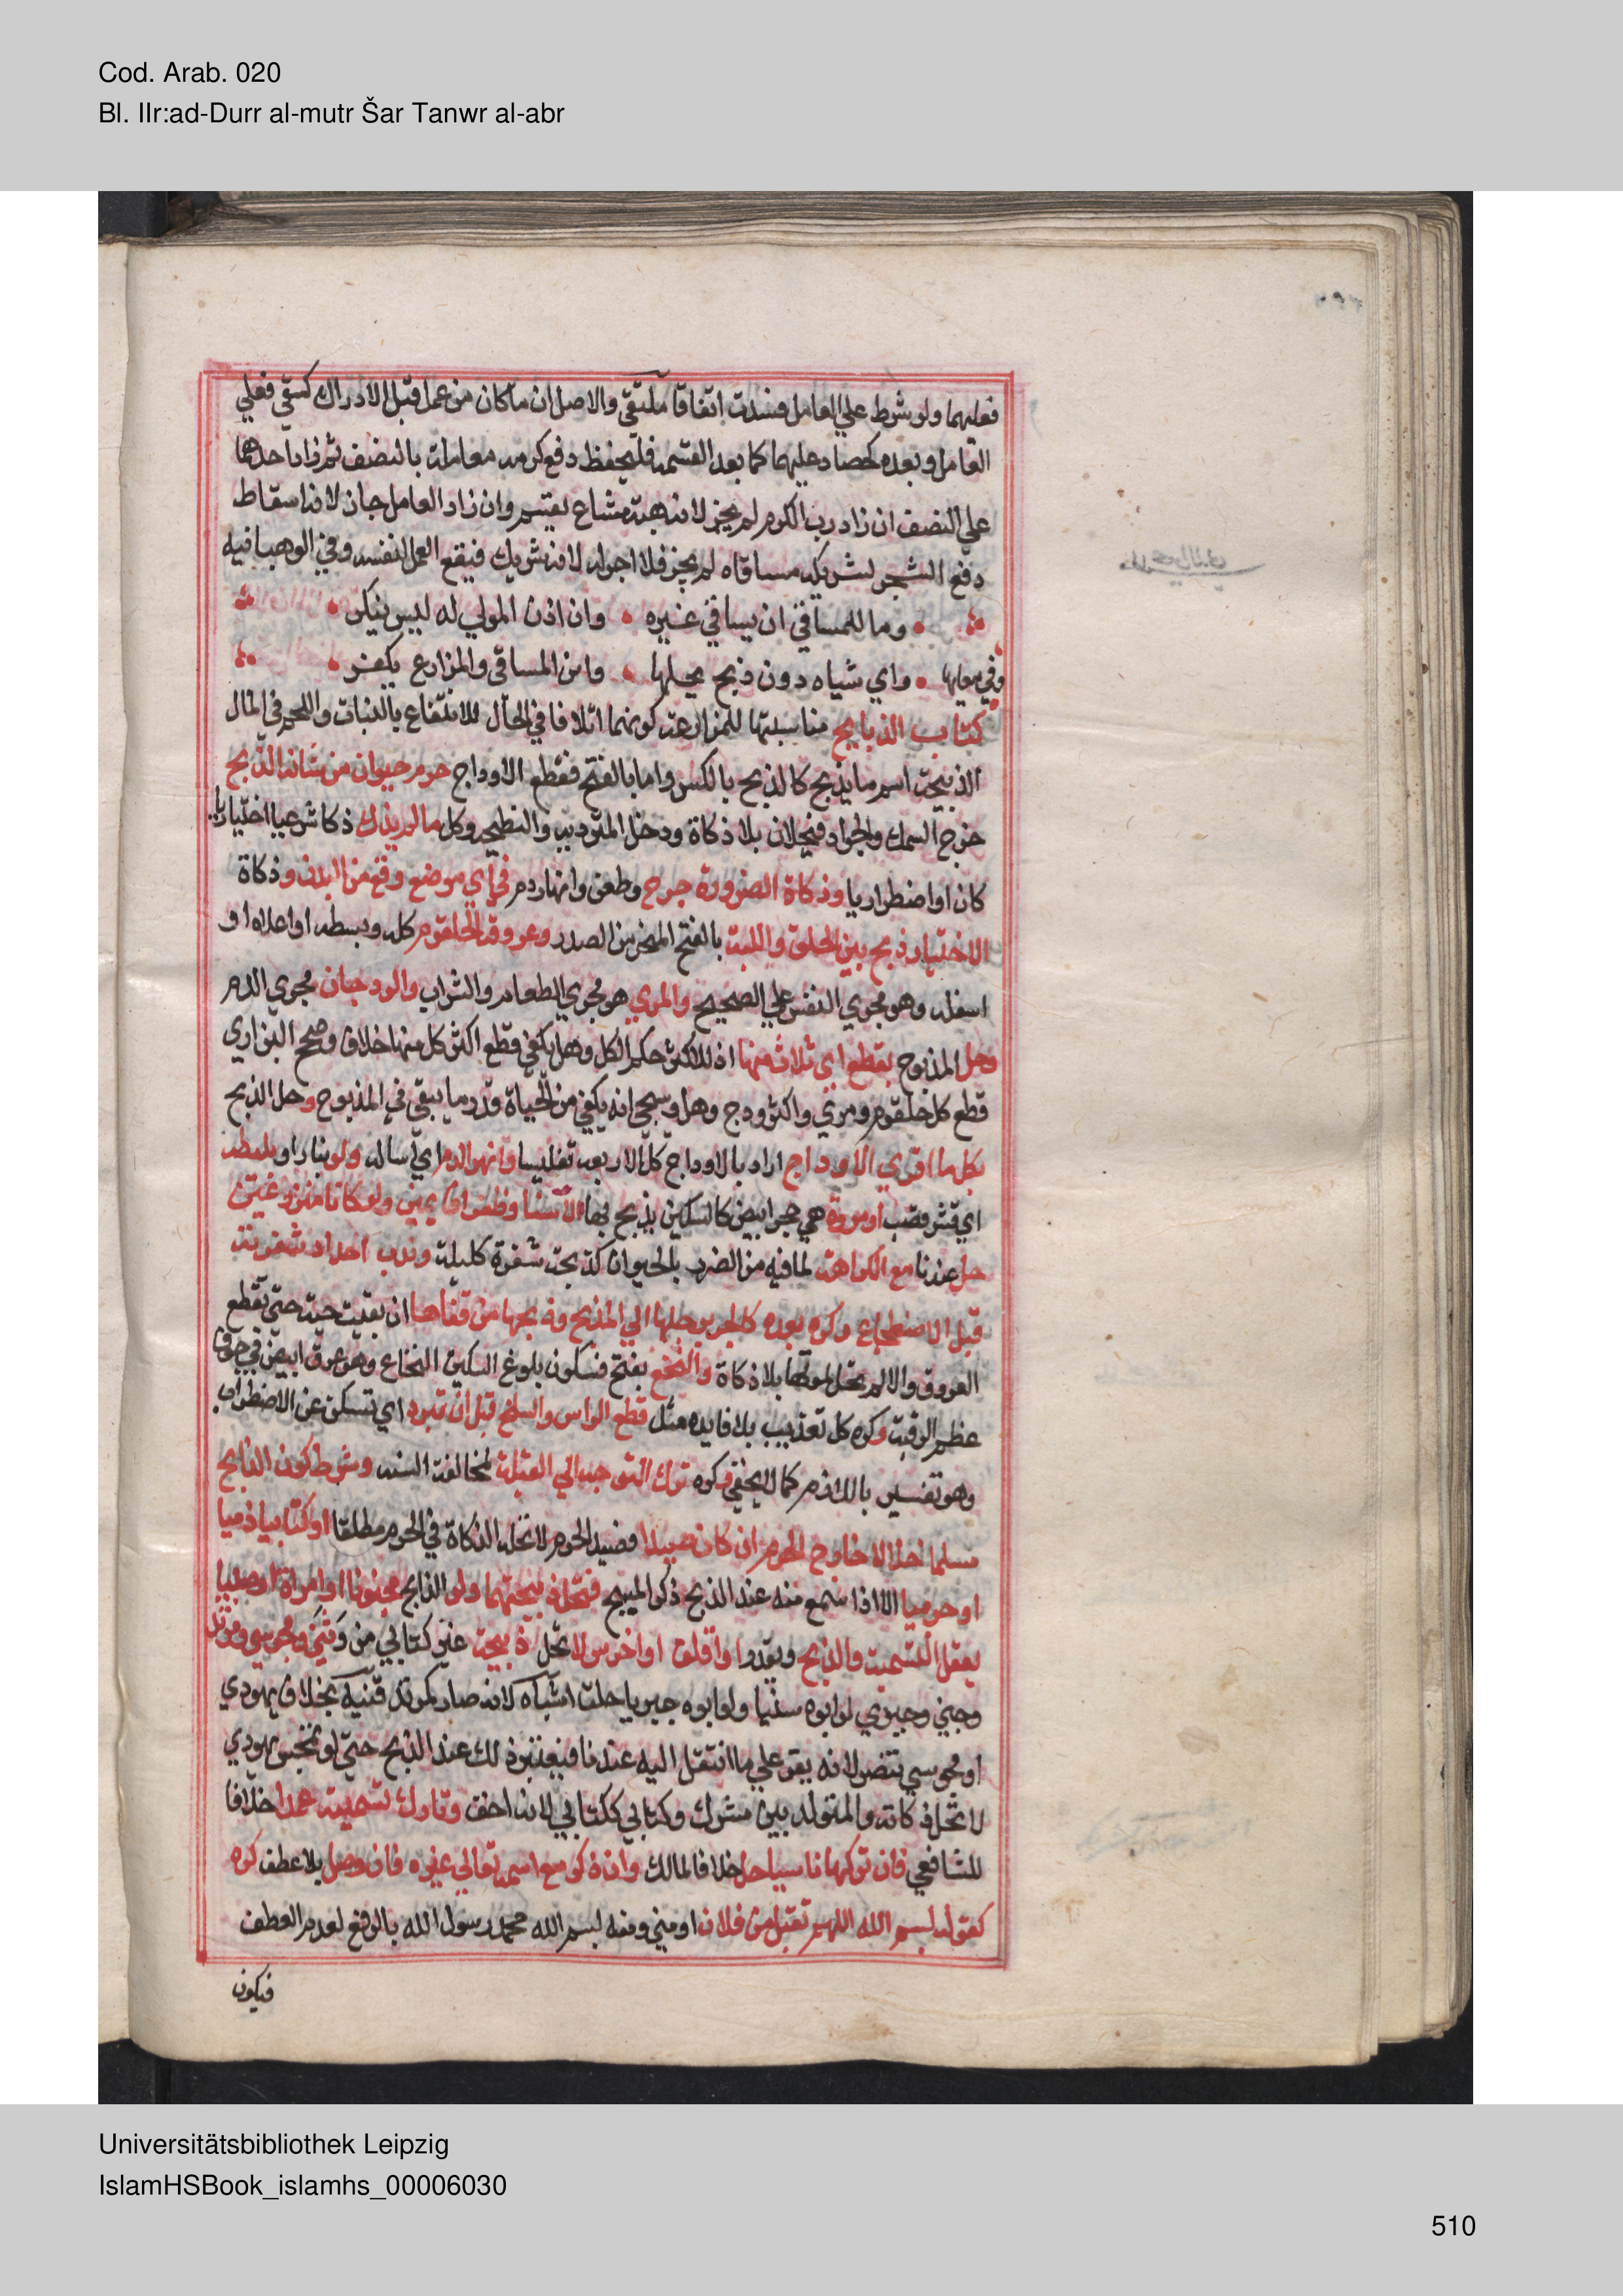 Cod. Arab. 020
Bl. IIr:ad-Durr al-mutr Šar Tanwr al-abr
فعليهما ولو شرط علي العامل فسدت اتفاقا ملتقي والاصل ان ما كان من عمل قبل الادراك كسقي فعلي
العامل وبعده كحصاد عليهما كما بعد القسمة فليحفظ دفع كرمه معاملة بالنصف ثم زاد احدهما
علي النصف ان زاد رب الكرم لم يجز لانه هبة مشاع يقسم وان زاد العامل جاز لانه اسقاط
دفع الشجر لشريكه مساقاه لم يجز فلا اجر له لانه شريك فيقع العمل لنفسه وفي الوهبانية
وما للمساقي ان يساقي غيره وان اذن المولي له ليس ينكر
وفي معاياتها واي شياه دون ذبح يحلها وابن المساقي والمزارع يكفر
كتاب الذبايح مناسبتها للمزارعة كونهما اتلافا في الحال للانتفاع بالنبات واللحم في المال
الذبيحة اسم ما يذبح كالذبح بالكسر واما بالفتح فقطع الاوداج حرم حيوان من شانه الذبح
خرج السمك والجراد فيحلان بلا ذكاة ودخل المتردية والنطيحة وكل ما لم يذك ذكاء شرعيا اختياريا
كان او اضطراريا وذكاة الضرورة جرح وطعن وانهار دم في اي موضع وقع من البدن وذكاة
الاختيار ذبح بين الحلق واللبة بالفتح المنحر من الصدر وعروقه الحلقوم كله وسطه او اعلاه او
اسفله وهو مجري النفس علي الصحيح والمري هو مجري الطعام والشراب والودجان مجري الدم
وحل المذبوح بقطع اي ثلاث منها اذ للاكثر حكم الكل وهل يكفي قطع اكثر كل منها خلاف وصحح البزازي
قطع كل حلقوم ومري واكثر ودج وهل وسيجي انه يكفي من الحياة قدر ما يبقي في المذبوح وحل الذبح
بكل ما افري الاوداج اراد بالاوداج كل الاربعة تغليبا وانهر الدم اي اساله ولو بنار او بليطة
اي قشر قصب او مروة هي حجر ابيض كالسكين يذبح بها الا سنا وظفرا قايمين ولو كانا منزوعين
حل عندنا مع الكراهة لما فيه من الضرر بالحيوان كذبحه بشفرة كليلة وندب احداد شفرته
قبل الاضجاع وكره بعده كالجر برجلها الي المذبح وذبحها من قفاها ان بقيت حية حتي تقطع
العروق والا لم تحل لموتها بلا ذكاة والنخع بفتح فسكون بلوغ السكين النخاع وهو عرق ابيض في جوف
عظم الرقبة وكره كل تعذيب بلا فايده مثل قطع الراس والسلخ قبل ان تبرد اي تسكن عن الاضطراب
وهو تفسير باللازم كما لا يخفي وكره ترك التوجه الي القبلة لمخالفة السنه وشرط كون الذابح
مسلما حلالا خارج الحرم ان كان صيدا فصيد الحرم لا تحله الذكاة في الحرم مطلقا او كتابيا ذميا
او حربيا الا اذا سمع منه عند الذبح ذكر المسيح فتحل ذبيحتهما ولو الذابح مجنونا او امراة او صبيا
يعقل التسمية والذبح ويقدر او اقلف او اخرس لا تحل ذبيحة غير كتابي من وثني ومجوسي ومرتد
وجني وجبري لو ابوه سنيا ولو ابوه جبريا حلت اشباه لانه صار كمرتد قنيه بخلاف يهودي
او مجوسي تنصر لانه يقر علي ما انتقل اليه عندنا فيعتبر ذلك عند الذبح حتي لو تمجس يهودي
لا تحل ذكاته والمتولد بين مشرك وكتابي ككتابي لانه اخف وتارك تسمية عمدا خلافا
للشافعي فان تركها ناسيا حل خلافا لمالك وان ذكر مع اسمه تعالي غيره فان وصل بلا عطف كره
كقوله بسم الله اللهم تقبل من فلان او مني ومنه بسم الله محمد رسول الله بالرفع لعدم العطف
فيكون
Universitätsbibliothek Leipzig
IslamHSBook_islamhs_00006030
510